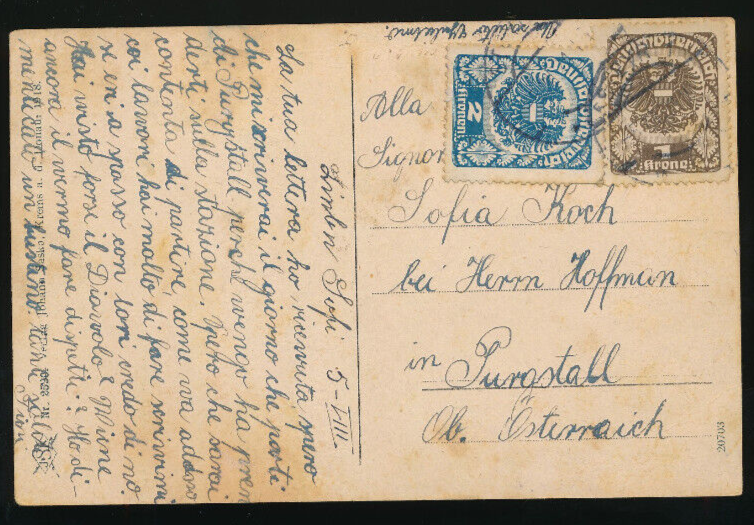 Alla
Signor
Sofia Koch
bei Herrn Hoffman
in
Purgstall
Ob. Österreich
Deutschösterreich
2
Kronen
Deutschösterreich
1
Krone
20703
Lirlen Sofi 5-VIII.
La tua lettera ho ricevuta spero
che mi scriverai il giorno che parti
di Purgstall perchè vengo ha pren
derti sulla stazione. Spero che sarai
contenta di partire, come va adesso
coi lavori hai molto di fare scrivimi
se in a spasso con lori credo di no
Hai visto forsi il Diavolo? Mime
ancora il vermo fare dispetti? Ho di
menticato un
Krems a. d. Donau 1918.